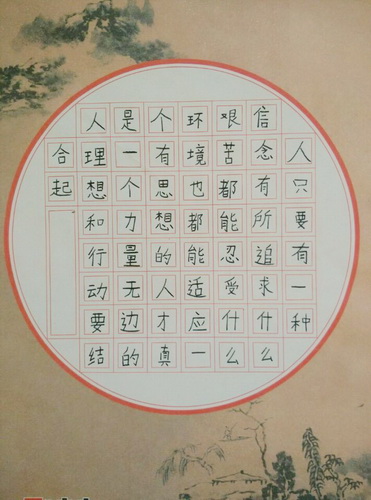 人只要有一种
信念有所追求什么
艰苦都能忍受什么
环境也都能适应一
个有思想的人才真
是一个力量无边的
人理想和行动要结
合起